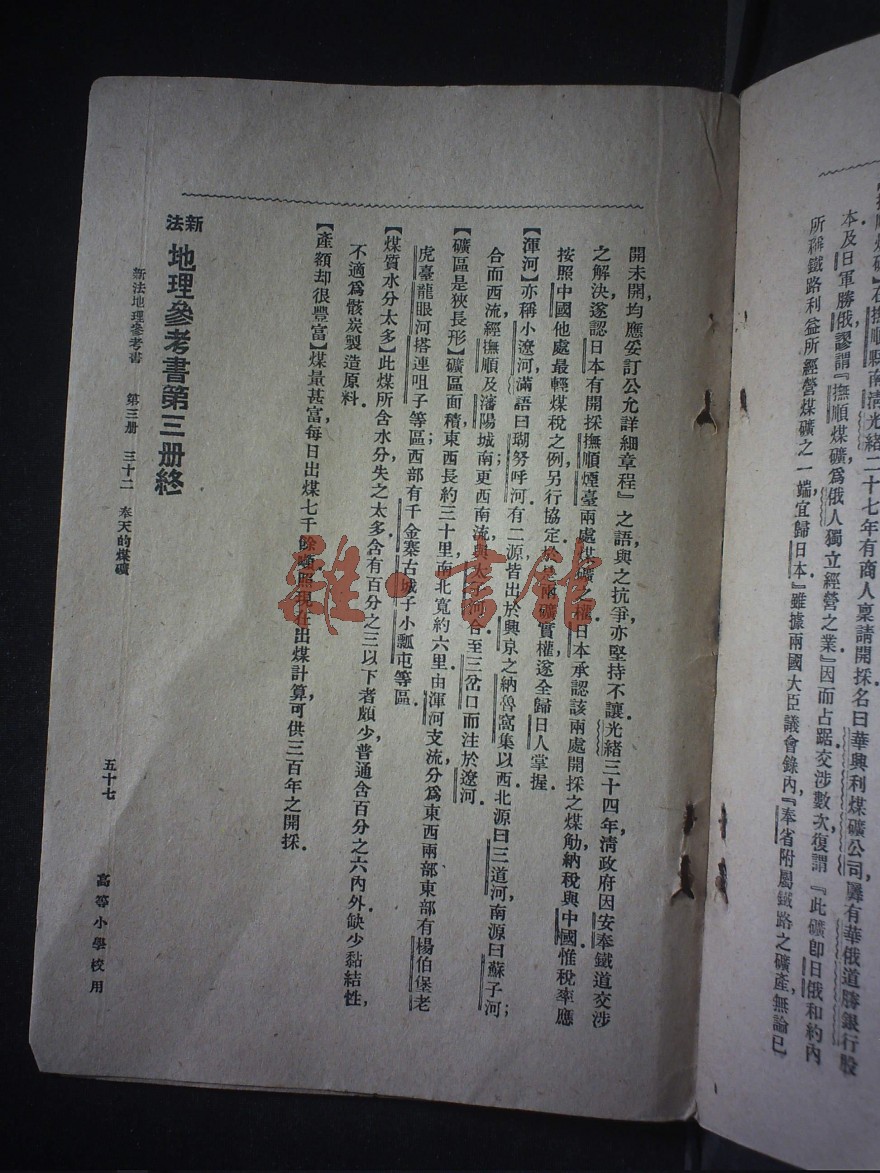 撫順煤礦】在撫順縣南清光緒二十七年有商人稟請開採名曰華興利煤礦公司羼有華俄道勝銀行股
本及日軍勝俄謬謂『撫順煤礦爲俄人獨立經營之業』因而占踞交涉數次復謂『此礦卽日俄和約內
所稱鐵路利益所經營煤礦之一端宜歸日本』雖據兩國大臣議會錄內『奉省附屬鐵路之礦產無論已
開未開,均應妥訂公允詳細章程』之語與之抗爭,亦堅持不讓.光緒三十四年,淸政府因安奉鐵道交涉
之解決,遂認日本有開採撫順煙臺兩處煤礦之權.日本承認該兩處開採之煤觔,納稅與中國.惟稅率應
按照中國他處最輕煤稅之例,另行協定.於是兩礦實權,遂全歸日人掌握.
【渾河】亦稱小遼河,滿語曰瑚努呼河.有二源,皆出於興京之納魯窩集以西.北源曰三道河,南源曰蘇子河;
合而西流,經撫順及瀋陽城南,更西南流,與太子河合,至三岔口而注於遼河.
【礦區是狹長形】礦區面積,東西長約三十里,南北寬約六里.由渾河支流,分爲東西兩部.東部有楊伯堡老
虎臺龍眼河搭連咀子等區;西部有千金寨古城子小瓢屯等區.
【煤質水分太多】此煤所含水分,失之太多.含有百分之三以下者頗少,普通含百分之六內外.缺少黏結性,
不適爲骸炭製造原料.
【產額却很豐富】煤量甚富,每日出煤七千餘噸.照現在出煤計算,可供三百年之開採.
新法 地理參考書第三册終
新法地理參考書 第三册 三十二 奉天的煤礦 五十七 高等小學校用
雜·書館